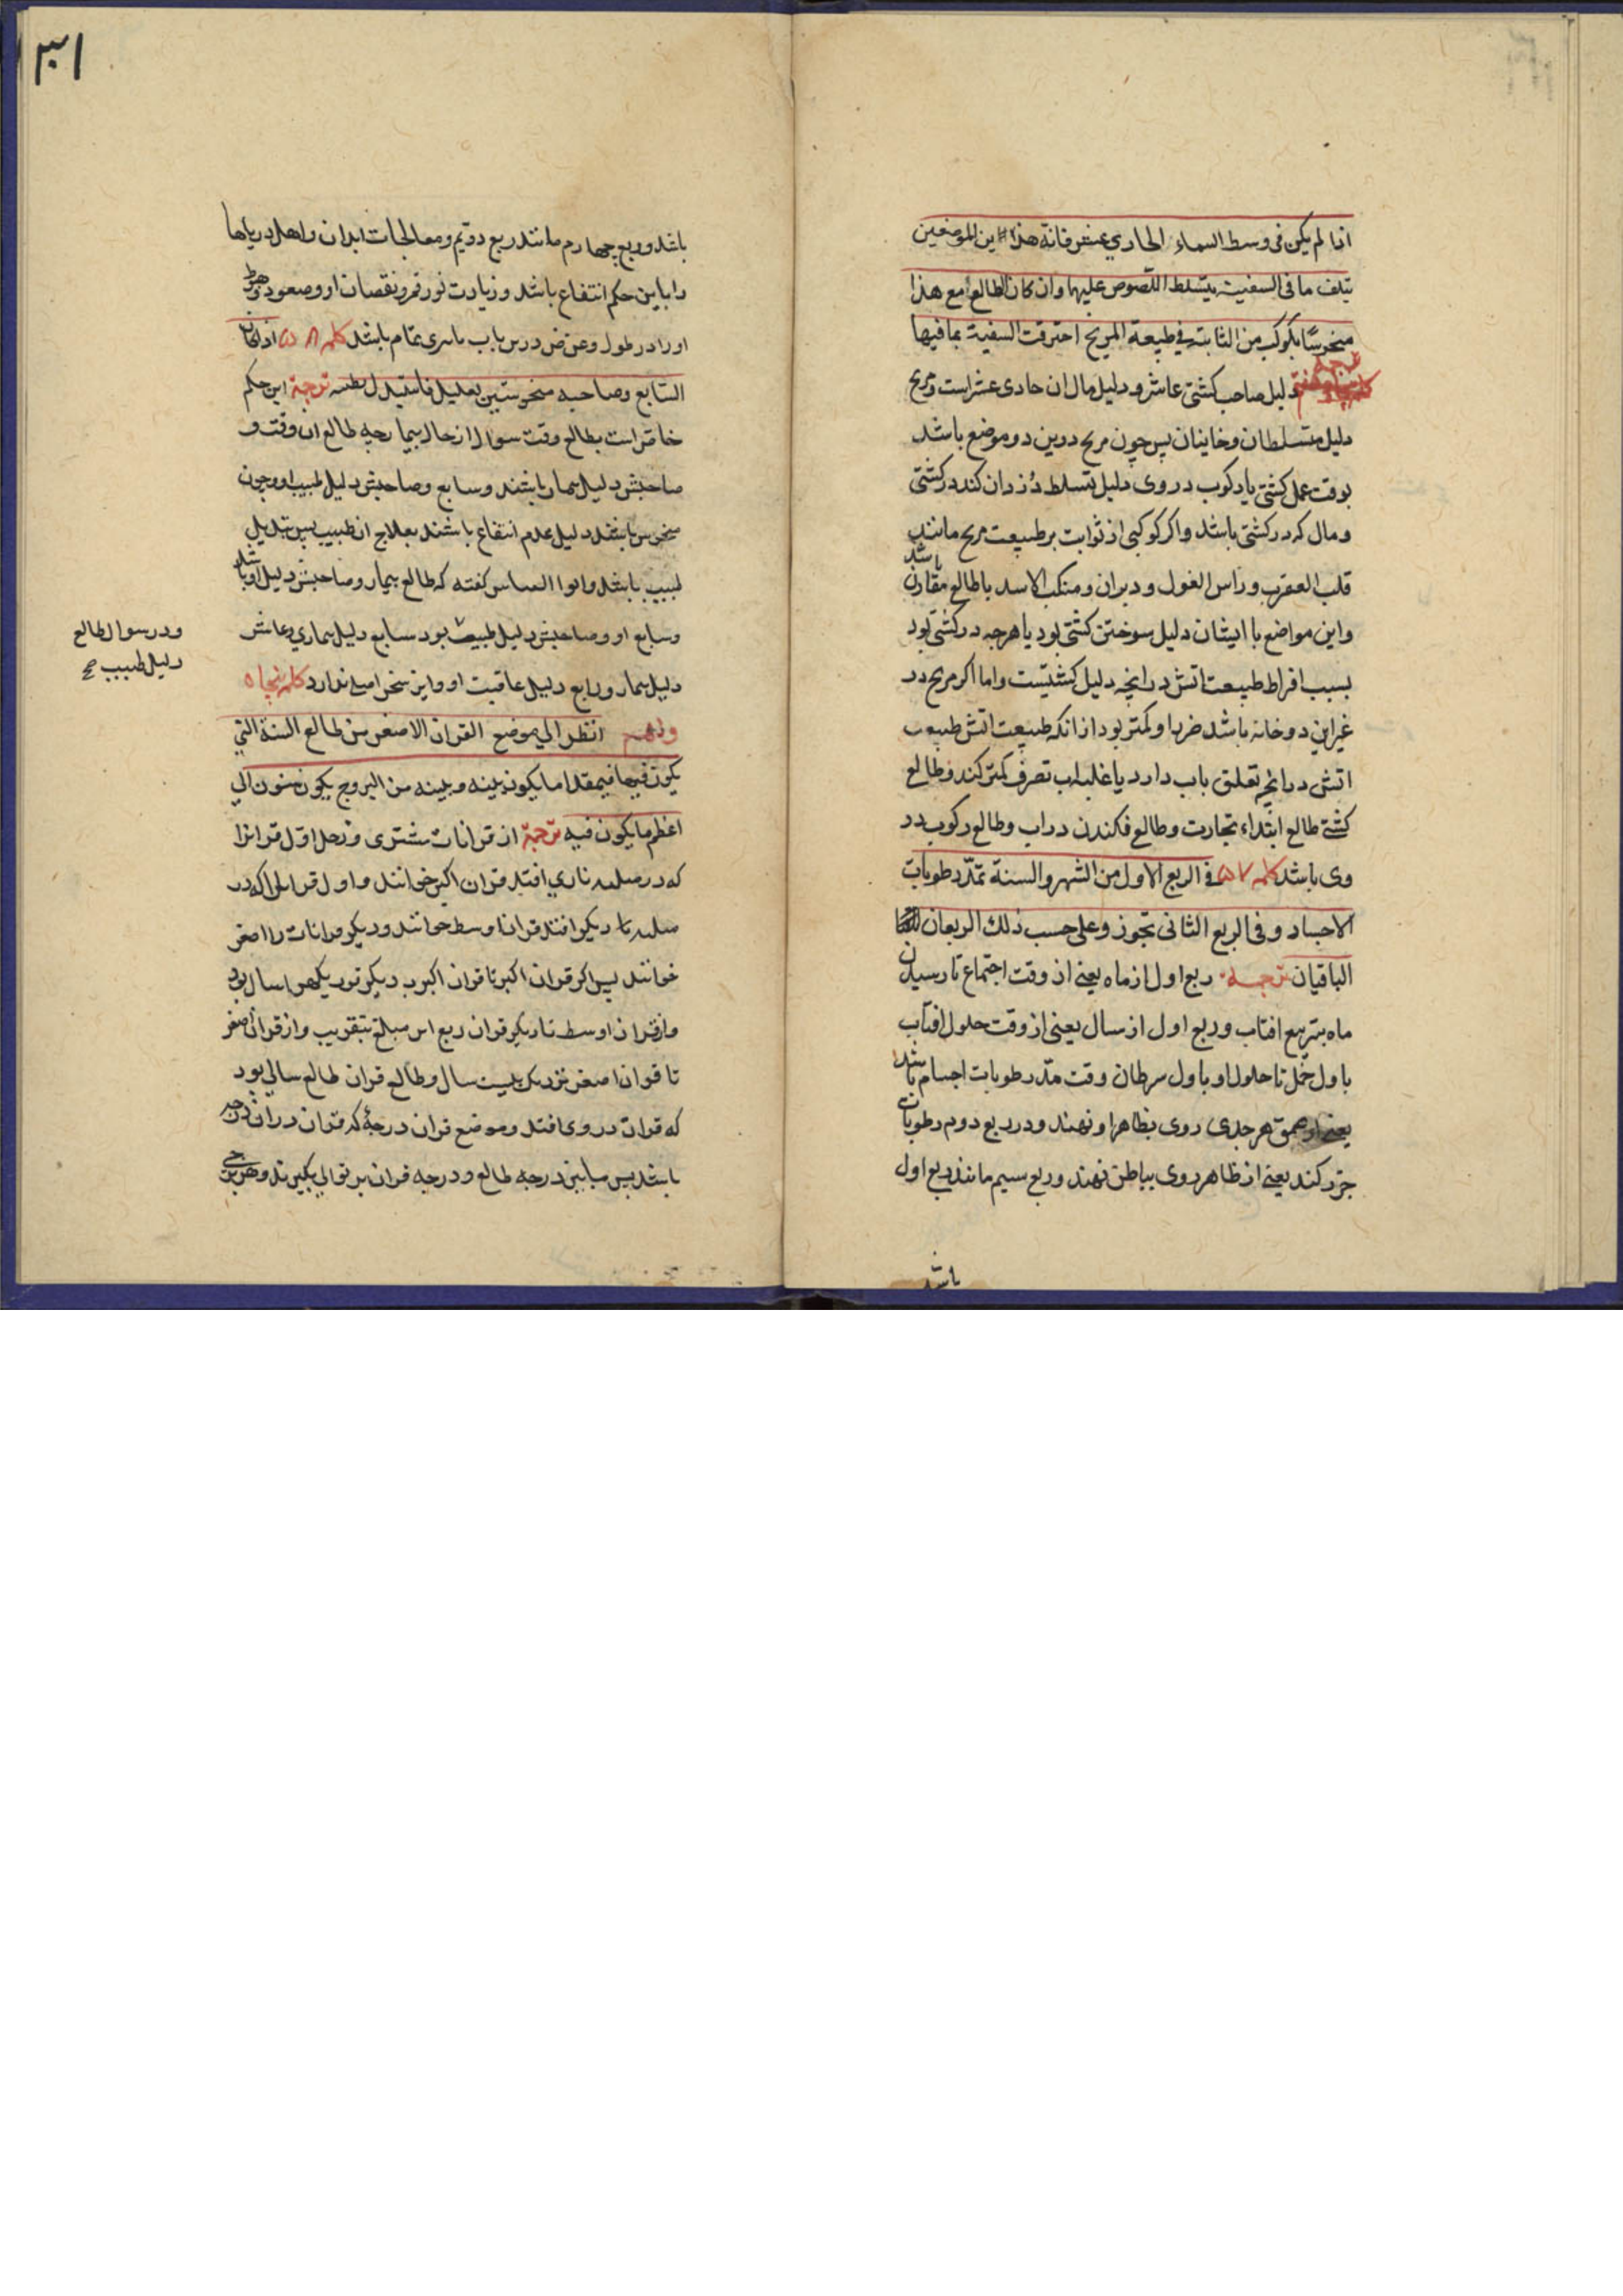 اذا لم یکن فی وسط السماء الحادی عشر فانه هذین الموضعین
یتلف ما فی السفینة یتسلط اللّصوص علیها وان کان الطالع مع هذا
منحوسًا بکوکب من الثابتة فی طبیعة المریخ احترقت السفینة بما فیها
ترجمه دلیل صاحب کشتی عاشر و دلیل مال ان حادی عشر است و مریخ
دلیل متسلطان و خاینان پس چون مریخ درین دو موضع باشد
بوقت عمل کشتی یا رکوب در وی دلیل تسلط دزدان کند در کشتی
و مال که در کشتی باشد واکر کوکبی از ثوابت بر طبیعت مریخ مانند
قلب العقرب و راس الغول و دبران و منکب الاسد با طالع مقارن باشد
و این مواضع با ایشان دلیل سوختن کشتی بود یا هرچه در کشتی بود
بسبب افراط طبیعت اتش در انچه دلیل کشتیست و اما اکر مریخ در
غیر این دو خانه باشد ضرر او کمتر بود از انکه طبیعت اتش طبیعت
اتش در انچه تعلق باب دارد یا غلبه اب تصرف کمتر کند و طالع
کشتی طالع ابتداء تجارت و طالع فکندن در اب و طالع رکوب در
وی باشد کلمه ۵۷ فی الربع الاول من الشهر والسنة تمدّ رطوبات
الاجساد و فی الربع الثانی تجوز و علی حسب ذلک الربعان
الباقیان ترجمه ربع اول از ماه یعنی از وقت اجتماع تا رسیدن
ماه بتربیع افتاب و ربع اول از سال یعنی از وقت حلول افتاب
باول حمل تا حلول او باول سرطان وقت مدّ رطوبات اجسام باشد
یعنی از عمق هر جسدی روی بظاهر او نهند و در ربع دوم رطوبات
جزر کند یعنی از ظاهر روی بباطن نهند و ربع سیم مانند ربع اول
باشد
۳۰۱
باشد و ربع چهارم مانند ربع دویم و معالجات ابدان و اهل دریاها
را باین حکم انتفاع باشد و زیادت نور قمر و نقصان او و صعود و هبوط
او را در طول و عرض درین باب تاثیری تمام باشد کلمه ۵۸ اذا کان
السابع و صاحبه منحوسین بعلیل فاستبدل بطبیبه ترجمة این حکم
خاص است بطالع وقت سوال از حال بیمار چه طالع ان وقت و
صاحبش دلیل بیمار باشند و سابع و صاحبش دلیل طبیب او و چون
منحوس باشند دلیل عدم انتفاع باشند بعلاج ان طبیب پس تبدیل
طبیب باید و ابو العباس کفته که طالع بیمار و صاحبش دلیل او باشد
و سابع او و صاحبش دلیل طبیب بود سابع دلیل بیماری و عاشر
دلیل بیمار و رابع دلیل عاقبت او و این سخن اصلی ندارد کلمه پنجاه
و نهم انظر الی موضع القران الاصغر من طالع السنة التی
یکون فیها فبمقدار ما یکون بینه و بینه من البروج یکون سنون الی
اعظم ما یکون فیه ترجمة از قرانات مشتری و زحل اول قرانرا
که در مثلثه ناری افتد قران اکبر خوانند و اول قرانی را که در
مثلثه دیکر افتد قران اوسط خوانند و دیکر قرانات را اصغر
خوانند پس اکر قران اکبر تا قران اکبر دیکر نهصد سال بود
و از قران اوسط تا دیکر قران ربع این مبلغ بتقریب و از قران اصغر
تا قران اصغر نزدیک بیست سال و طالع قران طالع سالی بود
که قران در وی افتد و موضع قران درجهٔ که قران در ان درجه
باشد پس مابین درجه طالع و درجه قران بر توالی بکیرند و هر برجی
و در سوال طالع
دلیل طبیب صح